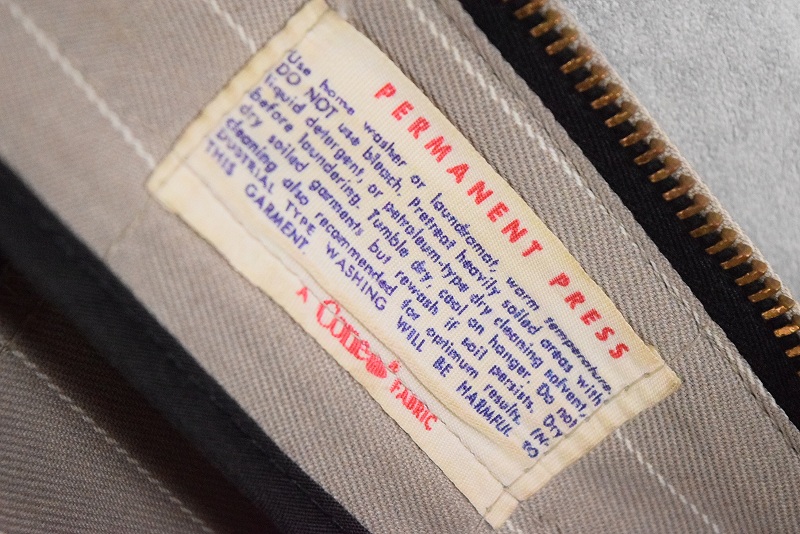 PERMANENT PRESS
Use home washer or laundromat, warm temperature.
DO NOT use bleach. Pretreat heavily soiled areas with
liquid detergent, or petroleum-type dry cleaning solvent,
before laundering. Tumble dry, cool on hanger. Do not
dry soiled garments but rewash if soil persists. Dry
cleaning also recommended for optimum results. IN-
DUSTRIAL TYPE WASHING WILL BE HARMFUL TO
THIS GARMENT.
A Cone® FABRIC